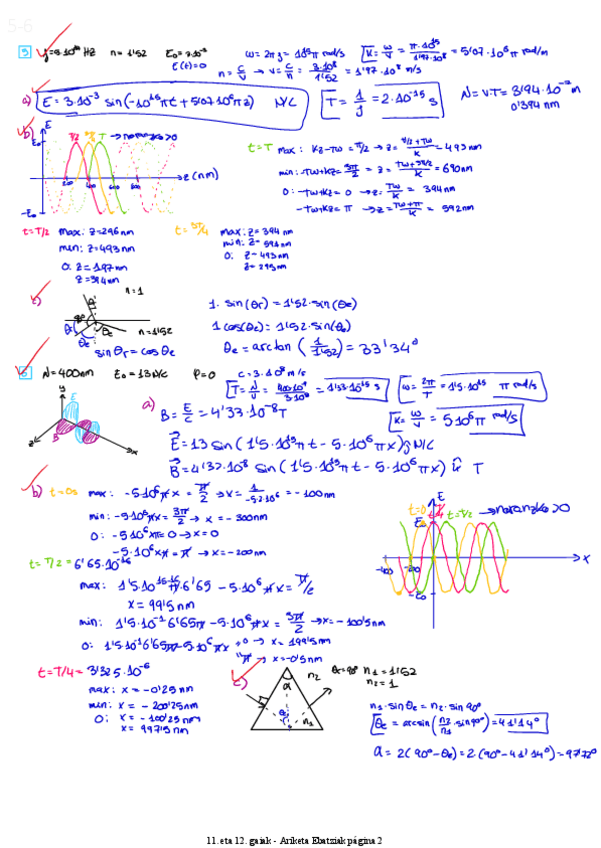 5-6
5 f=5·10¹⁴ Hz n=1'52 E₀=3·10⁻³ ω=2πf=10¹⁵π rad/s K=ω/v=π·10¹⁵/1'97·10⁸=5'07·10⁶π rad/m
E(t)=0 n=c/v → v=c/n=3·10⁸/1'52=1'97·10⁸ m/s
a) E=3·10⁻³ sin(-10¹⁵πt+5'07·10⁶πz) N/C T=1/f=2·10⁻¹⁵ s λ=v·T=3'94·10⁻⁷ m
0'394 nm
b) E
E₀ T/2 T → noranzko >0
200 400 600 800 z(nm)
-E₀
t=T max: Kz-Tω=π/2 → z=(π/2+Tω)/K=493 nm
min: -Tω+Kz=3π/2 = z=(Tω+3π/2)/K=690 nm
0: -Tω+Kz=0 → z=Tω/K=394 nm
-Tω+Kz=π → z=(Tω+π)/K=592 nm
t=T/2 max: z=296 nm
min: z=493 nm
0: z=197 nm
z=394 nm
max: z=394 nm
min: z=591 nm
0: z=493 nm
z=295 nm
c) n=1
90°
θr θe n=1'52
θe
sin θr=cos θe
1·sin(θr)=1'52·sin(θe)
1 cos(θe)=1'52·sin(θe)
θe=arctan(1/1'52)=33'34°
6 λ=400nm E₀=13 N/C P=0 c=3·10⁸ m/s
T=λ/v=400·10⁻⁹/3·10⁸=1'33·10⁻¹⁵ s ω=2π/T=1'5·10¹⁵ π rad/s
K=ω/v=5·10⁶π rad/s
y
E
B
z x
a) B=E/c=4'33·10⁻⁸T
E=13 sin(1'5·10¹⁵πt-5·10⁶πx)j N/C
B=4'33·10⁻⁸ sin(1'5·10¹⁵πt-5·10⁶πx) k T
b) t=0s max: -5·10⁶πx=π/2 → x=1/-5·2·10⁶=-100nm
min: -5·10⁶πx=3π/2 → x=-300nm
0: -5·10⁶xπ=0 → x=0
-5·10⁶xπ=π → x=-200nm
t=T/2=6'65·10⁻¹⁶
max: 1'5·10¹⁵⁻¹⁶π·6'65-5·10⁶πx=π/2
x=99'5nm
min: 1'5·10⁻¹6'65π-5·10⁶πx=3π/2 → x=-100'5nm
0: 1'5·10⁻¹6'65π-5·10⁶πx=0 → x=199'5nm
π → x=-0'5nm
E
t=0 T/4 t=T/2 → noranzko >0
-400 -200 x
-E₀
t=T/4=3'325·10⁻⁶
max: x=-0'25nm
min: x=-200'25nm
0: x=-100'25nm
x=99'75nm
c) α n₂ n₁
θe
θr=90° n₁=1'52
n₂=1
n₁·sin θe=n₂·sin 90°
θe=arcsin(n₂/n₁·sin90°)=41'14°
α=2(90°-θe)=2(90°-41'14°)=97'72°
11. eta 12. gaiak - Ariketa Ebatziak página 2